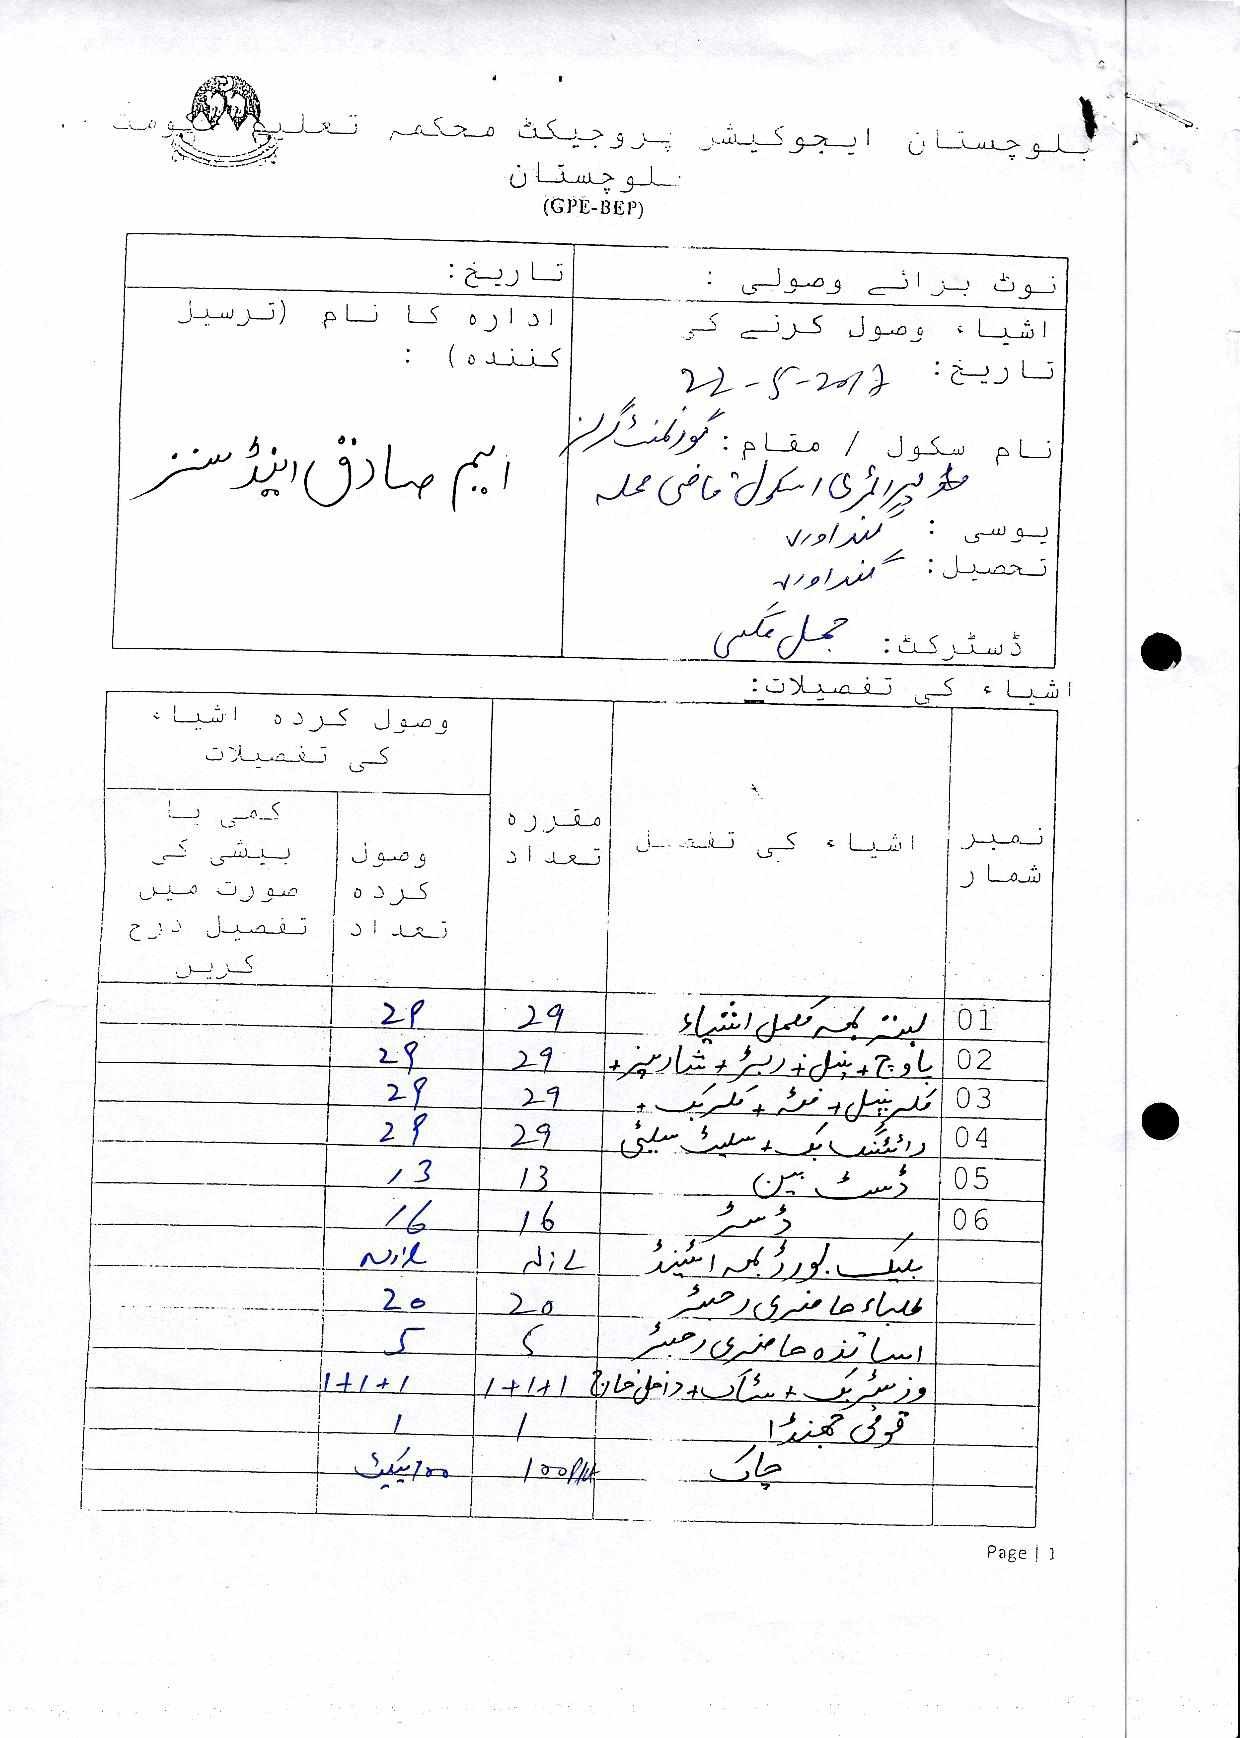 بلوچستان ایجوکیشر پروجیکٹ محکمہ تعلیم حکومت
بلوچستان
(GPE-BEP)
نوٹ برائے وصولی :
تاریخ:
اشیاء وصول کرنے کی
تاریخ: 22-5-2017
نام سکول / مقام: گورنمنٹ گرلز
پرائمری اسکول قاضی محلہ
یوسی : گنداواہ
تحصیل: گنداواہ
ڈسٹرکٹ: جھل مگسی
ادارہ کا نام (ترسیل
کنندہ) :
ایم صادق اینڈ سنز
اشیاء کی تفصیلات:
نمبر شمار
اشیاء کی تفصیل
مقررہ تعداد
وصول کردہ اشیاء کی تفصیلات
وصول کردہ تعداد
کمی یا بیشی کی صورت میں تفصیل درج کریں
01 بستہ بمہ مکمل اشیاء 29 29
02 + پنسل + ربڑ + شارپنر + 29 29
03 کلر پنسل + فٹہ + کلر بک + 29 29
04 رائٹنگ بک + سلیٹ سلیٹی 29 29
05 ڈسٹ بین 13 13
06 ڈسٹر 16 16
بلیک بورڈ بمہ اسٹینڈ
طلباء حاضری رجسٹر 20 20
اساتذہ حاضری رجسٹر 5 5
وزیٹر بک + سٹاک + داخل خارج 1+1+1 1+1+1
قومی جھنڈا 1 1
چاک 100 100 پیکٹ
Page | 1